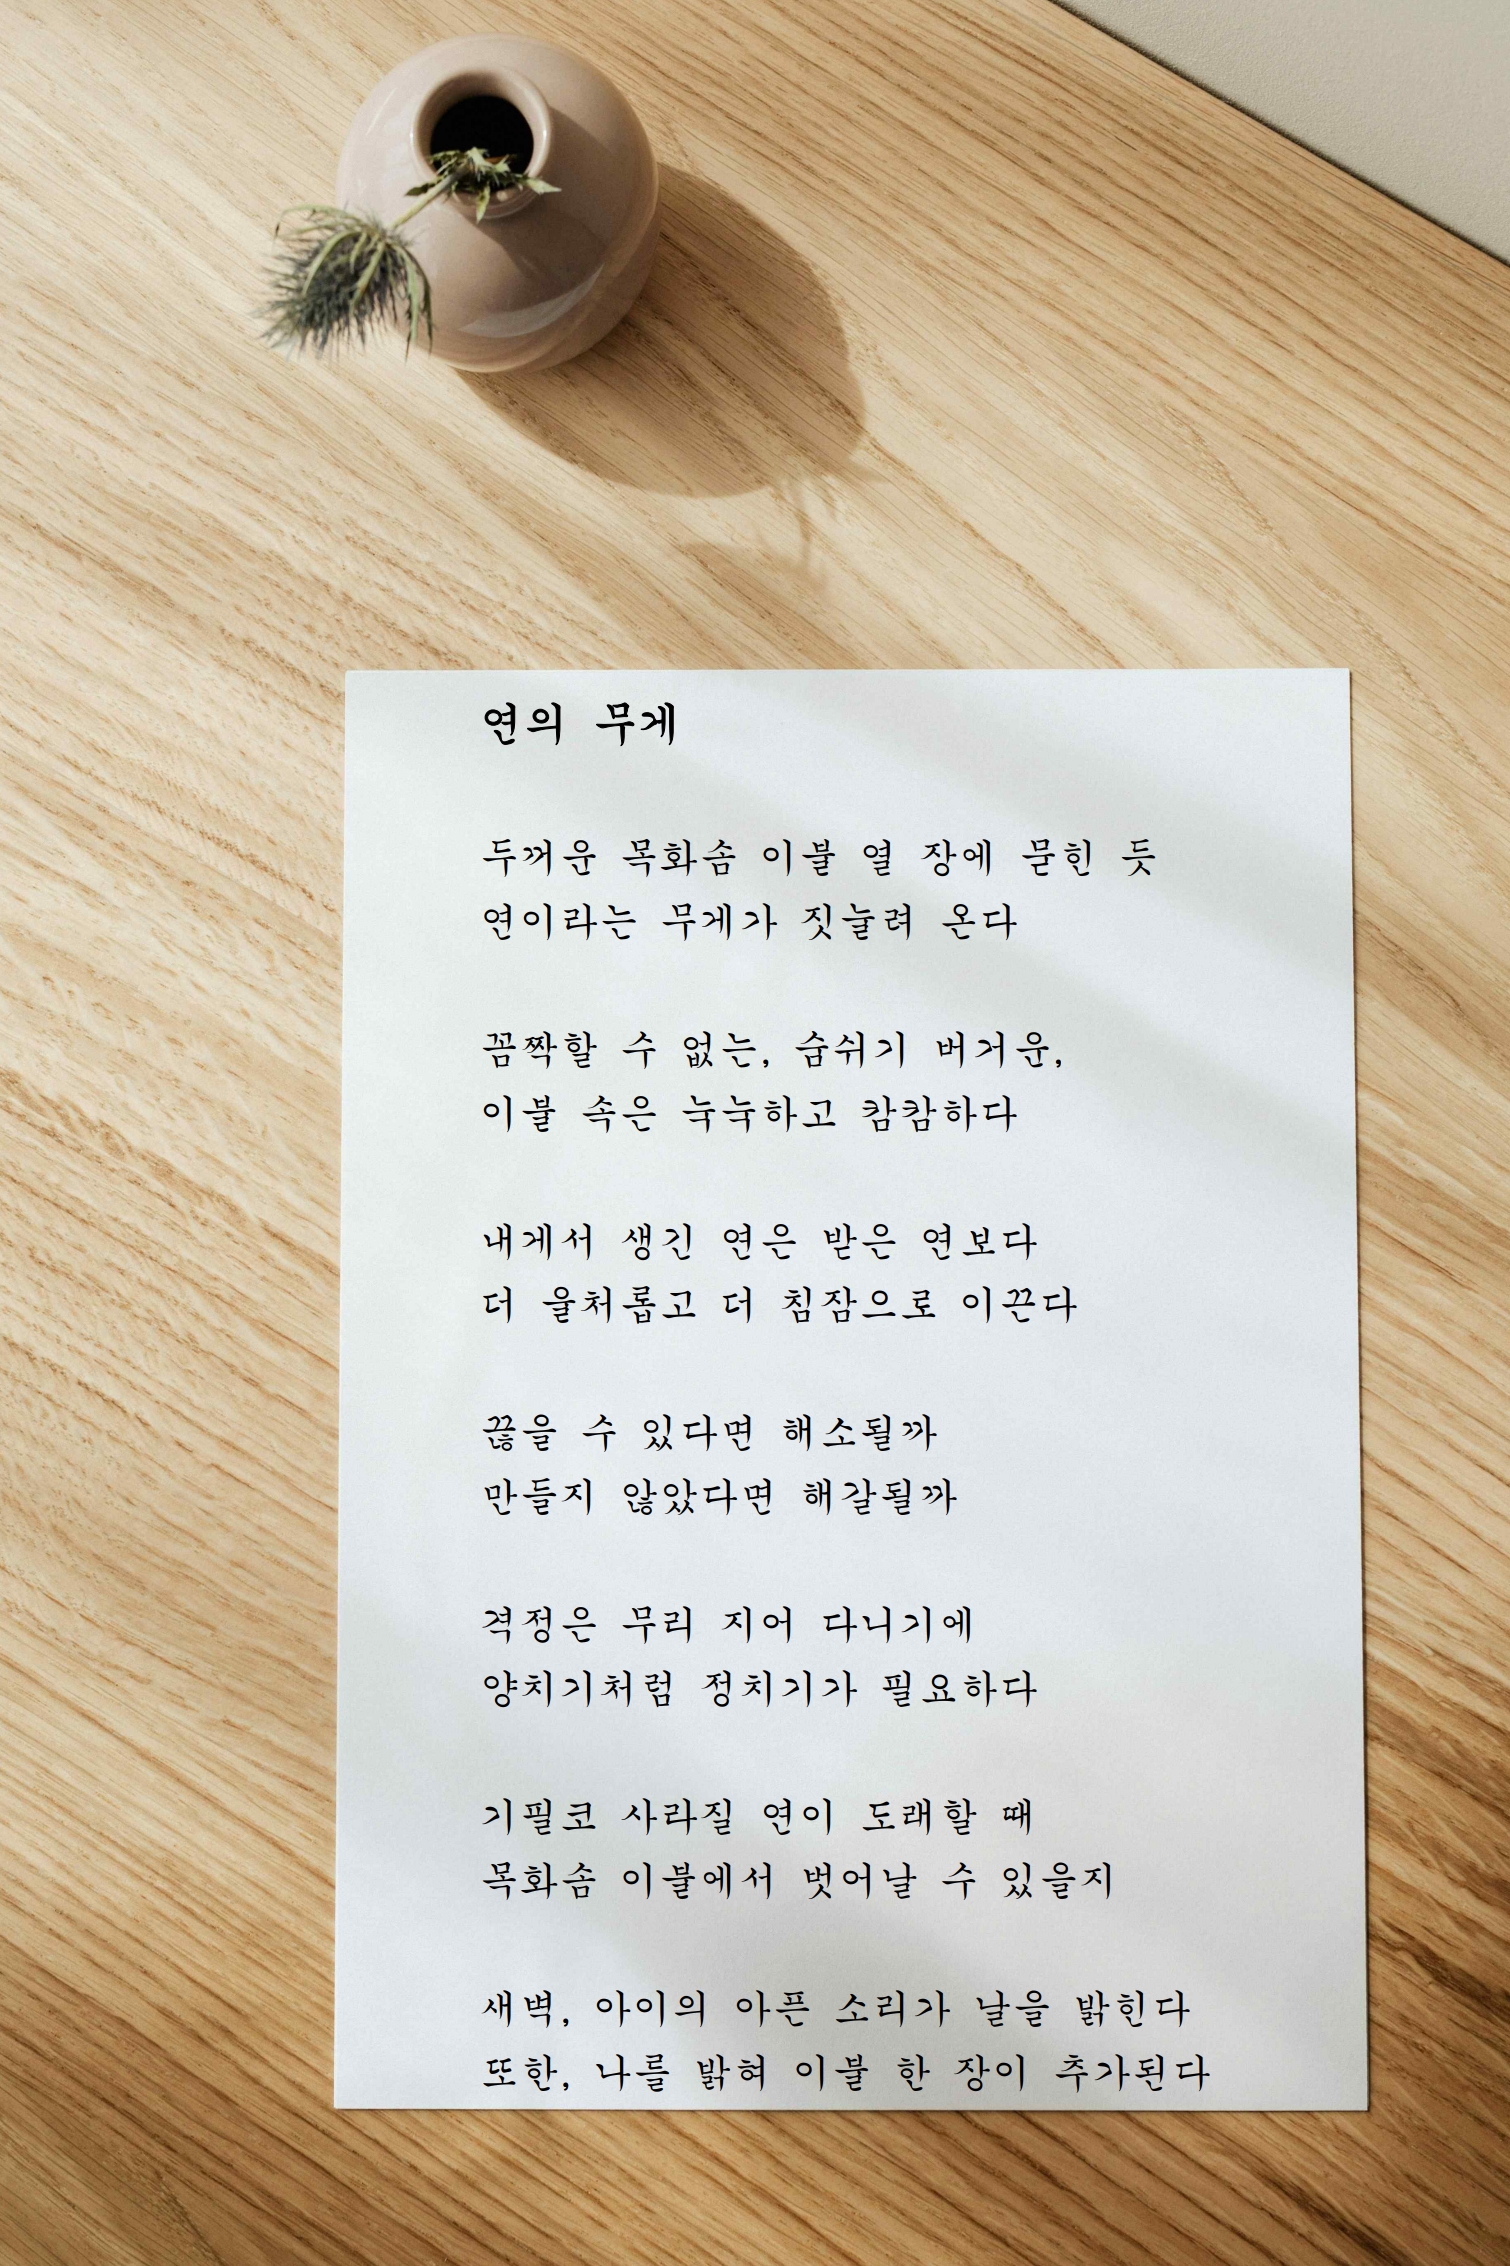 연의 무게
두꺼운 목화솜 이불 열 장에 묻힌 듯
연이라는 무게가 짓눌려 온다
꼼짝할 수 없는, 숨쉬기 버거운,
이불 속은 눅눅하고 캄캄하다
내게서 생긴 연은 받은 연보다
더 울처롭고 더 침잠으로 이끈다
끊을 수 있다면 해소될까
만들지 않았다면 해갈될까
걱정은 무리 지어 다니기에
양치기처럼 정치기가 필요하다
기필코 사라질 연이 도래할 때
목화솜 이불에서 벗어날 수 있을지
새벽, 아이의 아픈 소리가 날을 밝힌다
또한, 나를 밝혀 이불 한 장이 추가된다